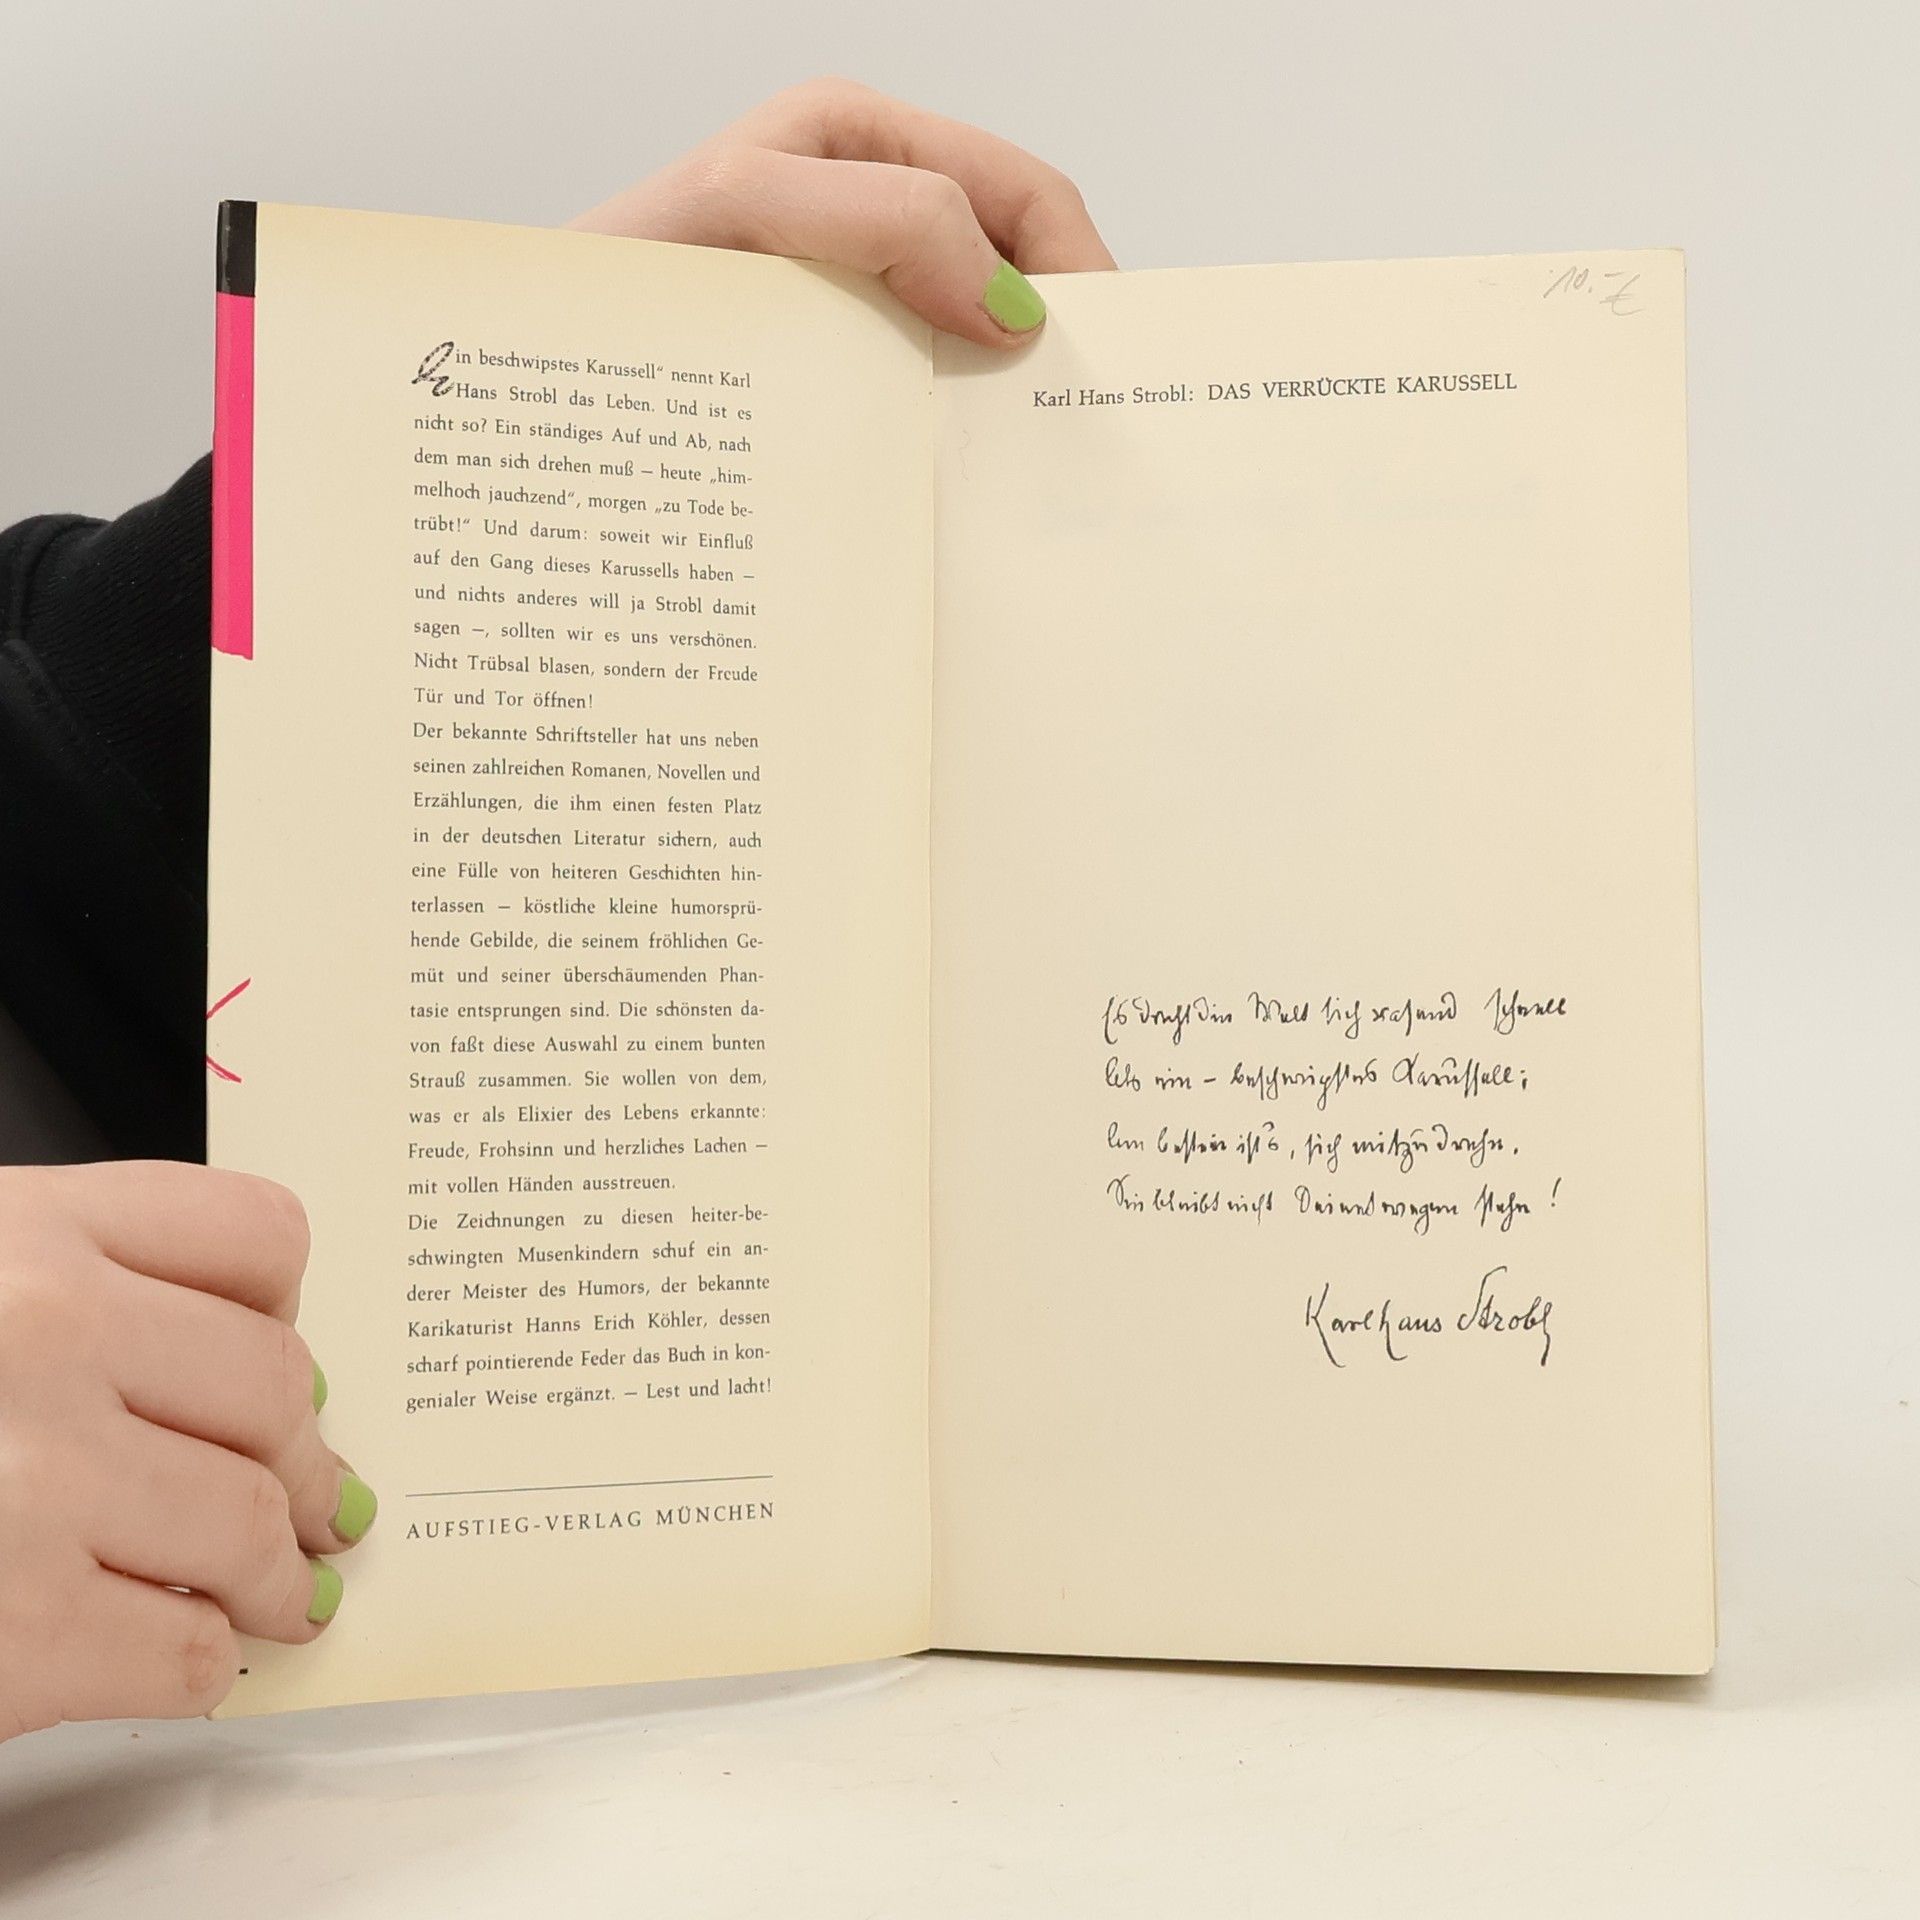 Ein beschwipstes Karussell“ nennt Karl
Hans Strobl das Leben. Und ist es
nicht so? Ein ständiges Auf und Ab, nach
dem man sich drehen muß – heute „him-
melhoch jauchzend“, morgen „zu Tode be-
trübt!“ Und darum: soweit wir Einfluß
auf den Gang dieses Karussells haben –
und nichts anderes will ja Strobl damit
sagen –, sollten wir es uns verschönen.
Nicht Trübsal blasen, sondern der Freude
Tür und Tor öffnen!
Der bekannte Schriftsteller hat uns neben
seinen zahlreichen Romanen, Novellen und
Erzählungen, die ihm einen festen Platz
in der deutschen Literatur sichern, auch
eine Fülle von heiteren Geschichten hin-
terlassen – köstliche kleine humorsprü-
hende Gebilde, die seinem fröhlichen Ge-
müt und seiner überschäumenden Phan-
tasie entsprungen sind. Die schönsten da-
von faßt diese Auswahl zu einem bunten
Strauß zusammen. Sie wollen von dem,
was er als Elixier des Lebens erkannte:
Freude, Frohsinn und herzliches Lachen –
mit vollen Händen ausstreuen.
Die Zeichnungen zu diesen heiter-be-
schwingten Musenkindern schuf ein an-
derer Meister des Humors, der bekannte
Karikaturist Hanns Erich Köhler, dessen
scharf pointierende Feder das Buch in kon-
genialer Weise ergänzt. – Lest und lacht!
AUFSTIEG-VERLAG MÜNCHEN
10.-€
Karl Hans Strobl: DAS VERRÜCKTE KARUSSELL
Es dreht die Welt sich rasend schnell
Als ein – beschwipstes Karussell;
Am besten ist's, sich mitzudrehn.
Sie bleibt nicht Deinetwegen stehn!
Karl Hans Strobl